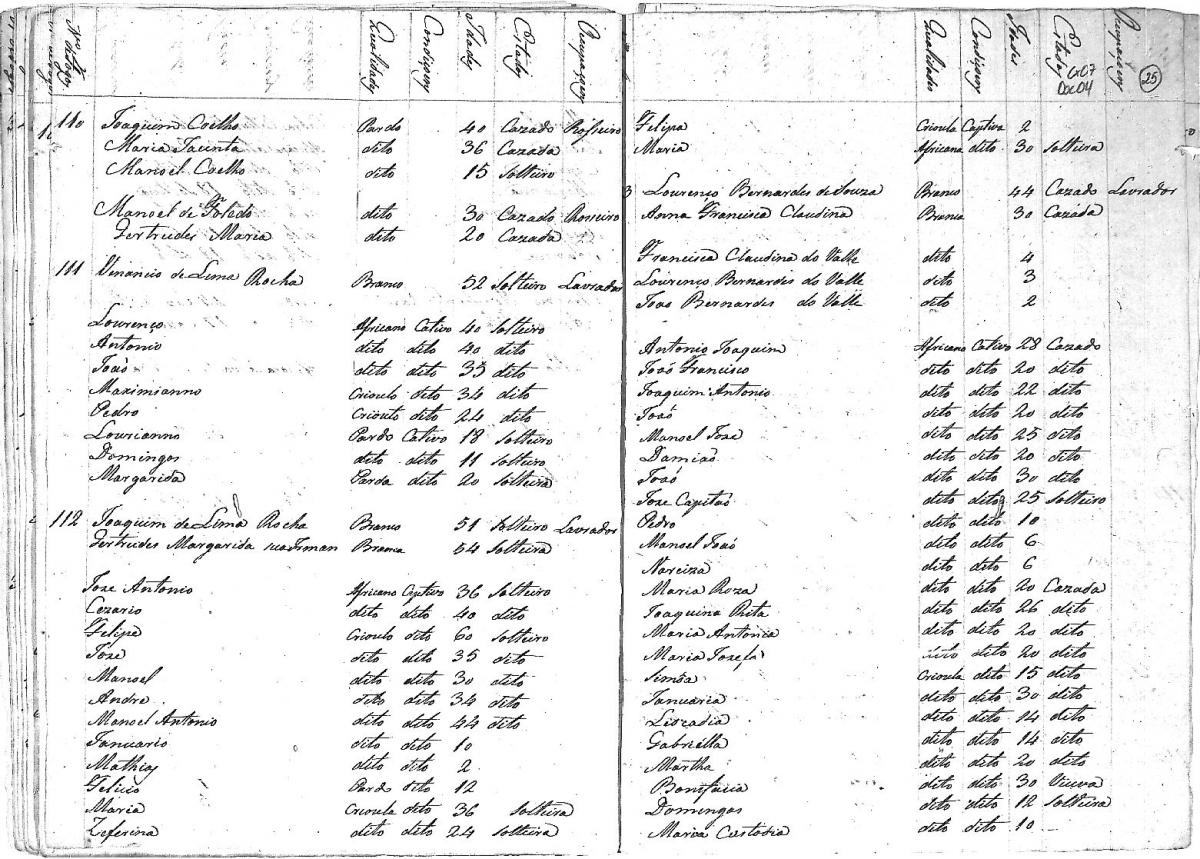 Qualidades Condiçoens Idades Estados Ocupaçoens
110 Joaquim Coelho Pardo 40 Cazado Rosseiro
Maria Jacinta dito 36 Cazada
Manoel Coelho dito 15 Solteiro
Manoel de Toledo dito 30 Cazado Rosseiro
Gertrudes Maria dito 20 Cazada
111 Vinancio de Lima Rocha Branco 52 Solteiro Lavrador
Lourenço Africano Cativo 40 Solteiro
Antonio dito dito 40 dito
João dito dito 35 dito
Maximianno Crioulo dito 34 dito
Pedro Crioulo dito 24 dito
Lourianno Pardo Cativo 18 Solteiro
Domingos dito dito 11 Solteiro
Margarida Parda dito 20 Solteira
112 Joaquim de Lima Rocha Branco 51 Solteiro Lavrador
Gertrudes Margarida sua Irman Branca 54 Solteira
Joze Antonio Africano Captivo 36 Solteiro
Cezario dito dito 40 dito
Felipe Crioulo dito 60 Solteiro
Joze dito dito 35 dito
Manoel dito dito 30 dito
Andre dito dito 34 dito
Manoel Antonio dito dito 44 dito
Januario dito dito 10
Mathias dito dito 2
Felicio Pardo dito 12
Maria Crioula dito 36 Solteira
Zeferina dito dito 24 Solteira
Qualidades Condiçoens Idades Estados Ocupaçoens
Cx07
Doc04
25
Felipa Crioula Captiva 2
Maria Africana dito 30 Solteira
3 Lourenço Bernardes de Souza Branco 44 Cazado Lavrador
Anna Francisca Claudina Branca 30 Cazada
Francisca Claudina do Valle dito 4
Lourenço Bernardes do Valle dito 3
Joao Bernardes do Valle dito 2
Antonio Joaquim Africano Cativo 28 Cazado
João Francisco dito dito 20 dito
Joaquim Antonio dito dito 22 dito
João dito dito 20 dito
Manoel Joze dito dito 25 dito
Damião dito dito 20 dito
João dito dito 30 dito
Joze Capitão dito dito 25 Solteiro
Pedro dito dito 10
Manoel João dito dito 6
Narciza dito dito 6
Maria Roza dito dito 20 Cazada
Joaquina Rita dito dito 26 dito
Maria Antonia dito dito 20 dito
Maria Jozefa dito dito 20 dito
Simôa Crioula dito 15 dito
Januaria dito dito 30 dito
Liocadia dito dito 14 dito
Gabriella dito dito 14 dito
Martha dito dito 20 dito
Bonifacia dito dito 30 Viuva
Domingas dito dito 12 Solteira
Maria Custodia dito dito 10